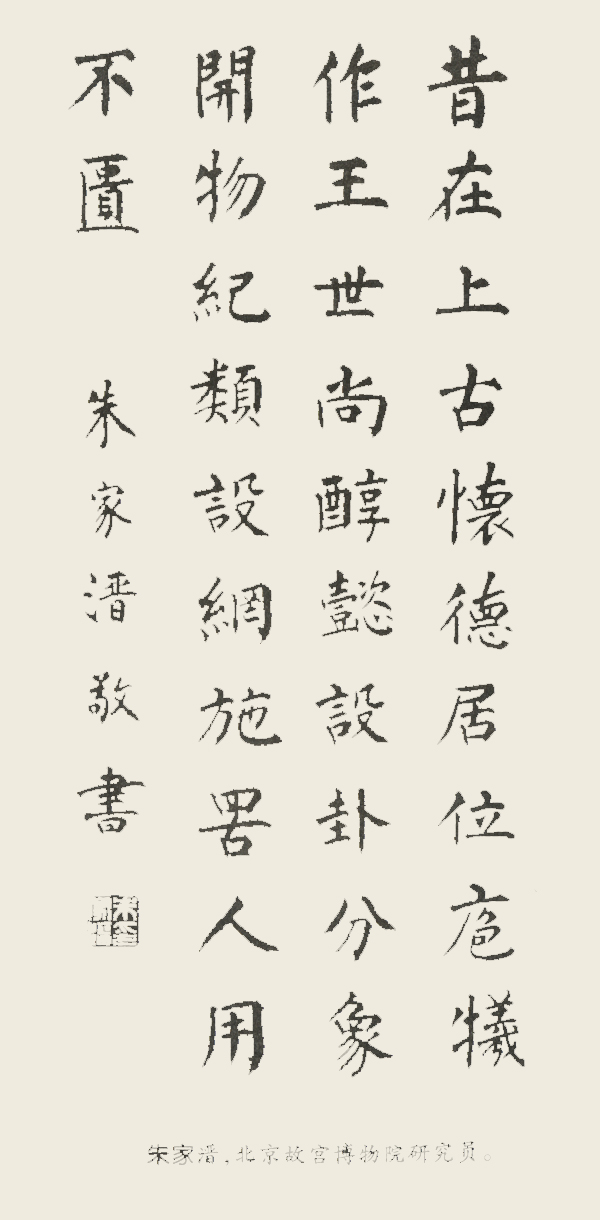 昔在上古懷德居位庖犧
作王世尚醇懿設卦分象
開物紀類設網施罟人用
不匱 朱家溍敬書
朱家溍，北京故宫博物院研究员。